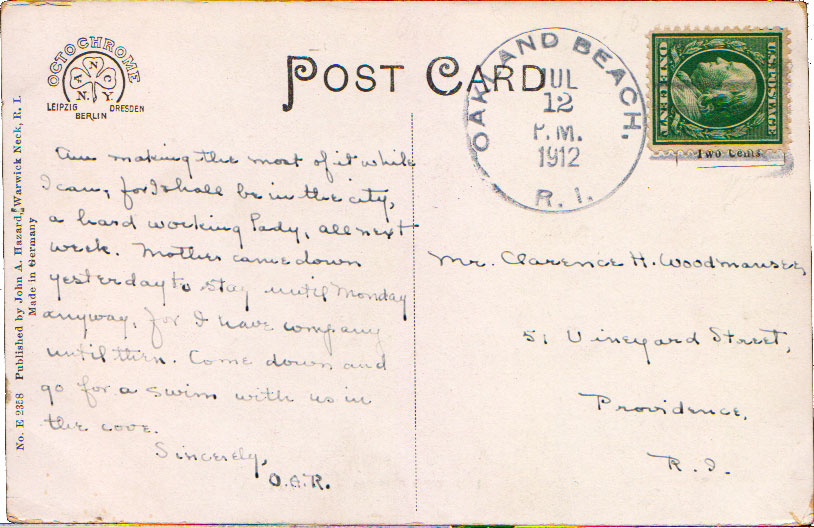 OCTOCHROME
A N C
N.Y.
LEIPZIG DRESDEN
BERLIN
POST CARD
OAKLAND BEACH.
JUL
12
P.M.
1912
R. I.
U.S. POSTAGE
ONE CENT
Two Cents
No. E 2358 Published by John A. Hazard, Warwick Neck, R. I.
Made in Germany
Am making the most of it while
I can, for I shall be in the city,
a hard working lady, all next
week. Mother came down
yesterday to stay until Monday
anyway, for I have company
until then. Come down and
go for a swim with us in
the cove.
Sincerely,
O.G.R.
Mr. Clarence H. Woodmansee,
51 Vineyard Street,
Providence,
R. I.